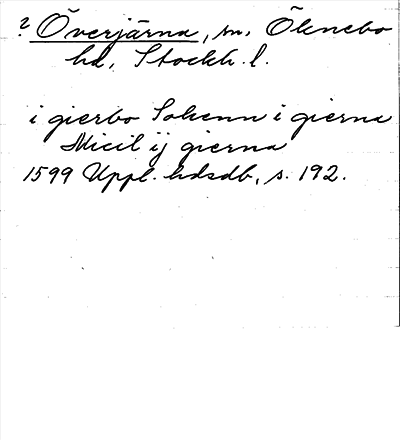 ? Överjärna, sn, Öknebo
hd, Stockh. l.
i gierbo Sokenn i gierna
Micil ij gierna
1599 Uppl. hdsdb, s. 192.